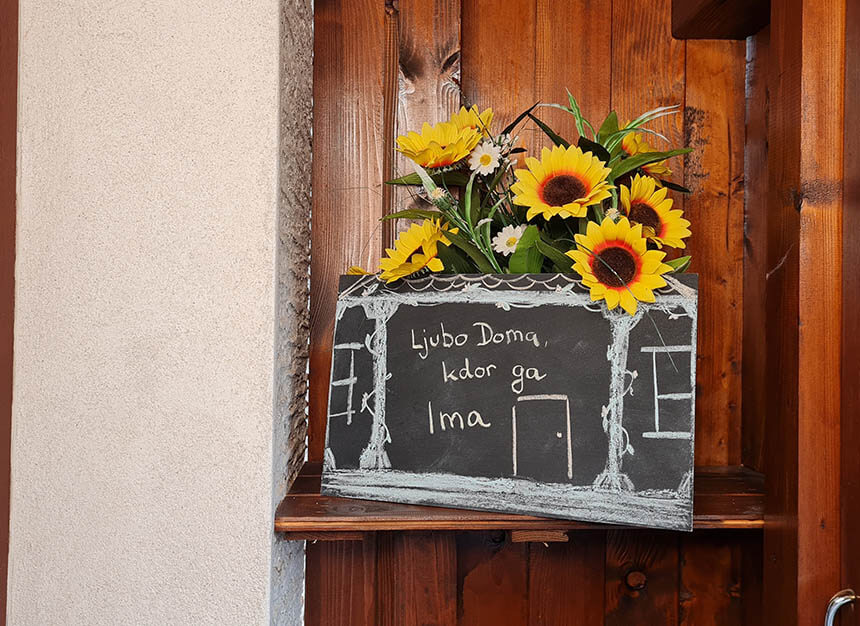 Ljubo Doma,
kdor ga
Ima